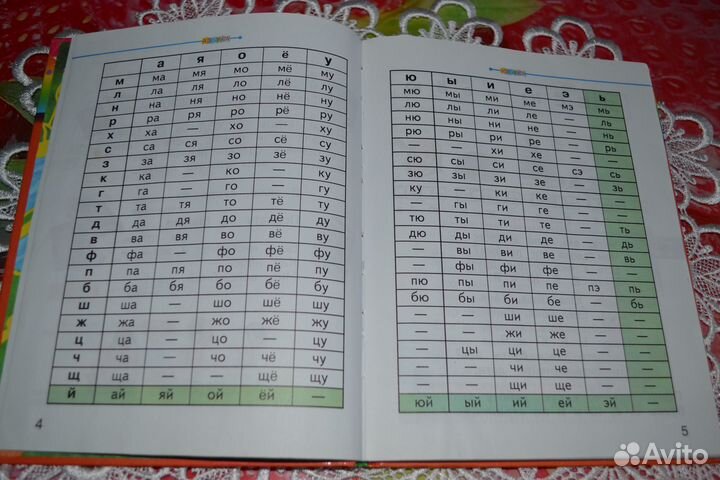 а я о ё у
м ма мя мо мё му
л ла ля ло лё лу
н на ня но нё ну
р ра ря ро рё ру
х ха — хо — ху
с са ся со сё су
з за зя зо зё зу
к ка — ко — ку
г га — го — гу
т та тя то тё ту
д да дя до дё ду
в ва вя во вё ву
ф фа — фо фё фу
п па пя по пё пу
б ба бя бо бё бу
ш ша — шо шё шу
ж жа — жо жё жу
ц ца — цо — цу
ч ча — чо чё чу
щ ща — — щё щу
й ай яй ой ёй —
4
ю ы и е э ь
мю мы ми ме мэ мь
лю лы ли ле — ль
ню ны ни не — нь
рю ры ри ре — рь
— — хи хе — —
сю сы си се сэ сь
зю зы зи зе — зь
ку — ки ке — —
— гы ги ге — —
тю ты ти те — ть
дю ды ди де — дь
— вы ви ве — вь
— фы фи фе — —
пю пы пи пе пэ пь
бю бы би бе — бь
— — ши ше — —
— — жи же — —
— цы ци це — —
— — чи че — —
— — щи ще — —
юй ый ий ей эй —
5
Avito